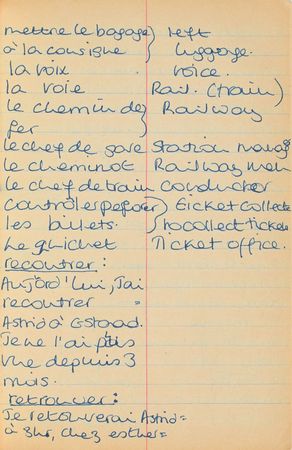 mettre le bagage) left
à la consigne luggage.
la voix voice.
la voie Rail. (train)
le chemin de) Railway
fer
le chef de gare Station manag
le cheminot Railway men
le chef de train conductor
contrôler ) ticket collecte
les billets. to collect tickets
Le guichet Ticket office.
recontrer:
Aujord'lui, J'ai
recontrer =
Astrid à Gstaad.
Je ne l'ai pas
vue depuis 3
mois.
retrouver:
Je retouverai Astrid=
à 3hr, chez esther=